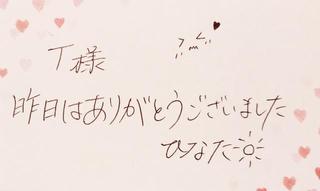 T様
昨日はありがとうございました
ひなた